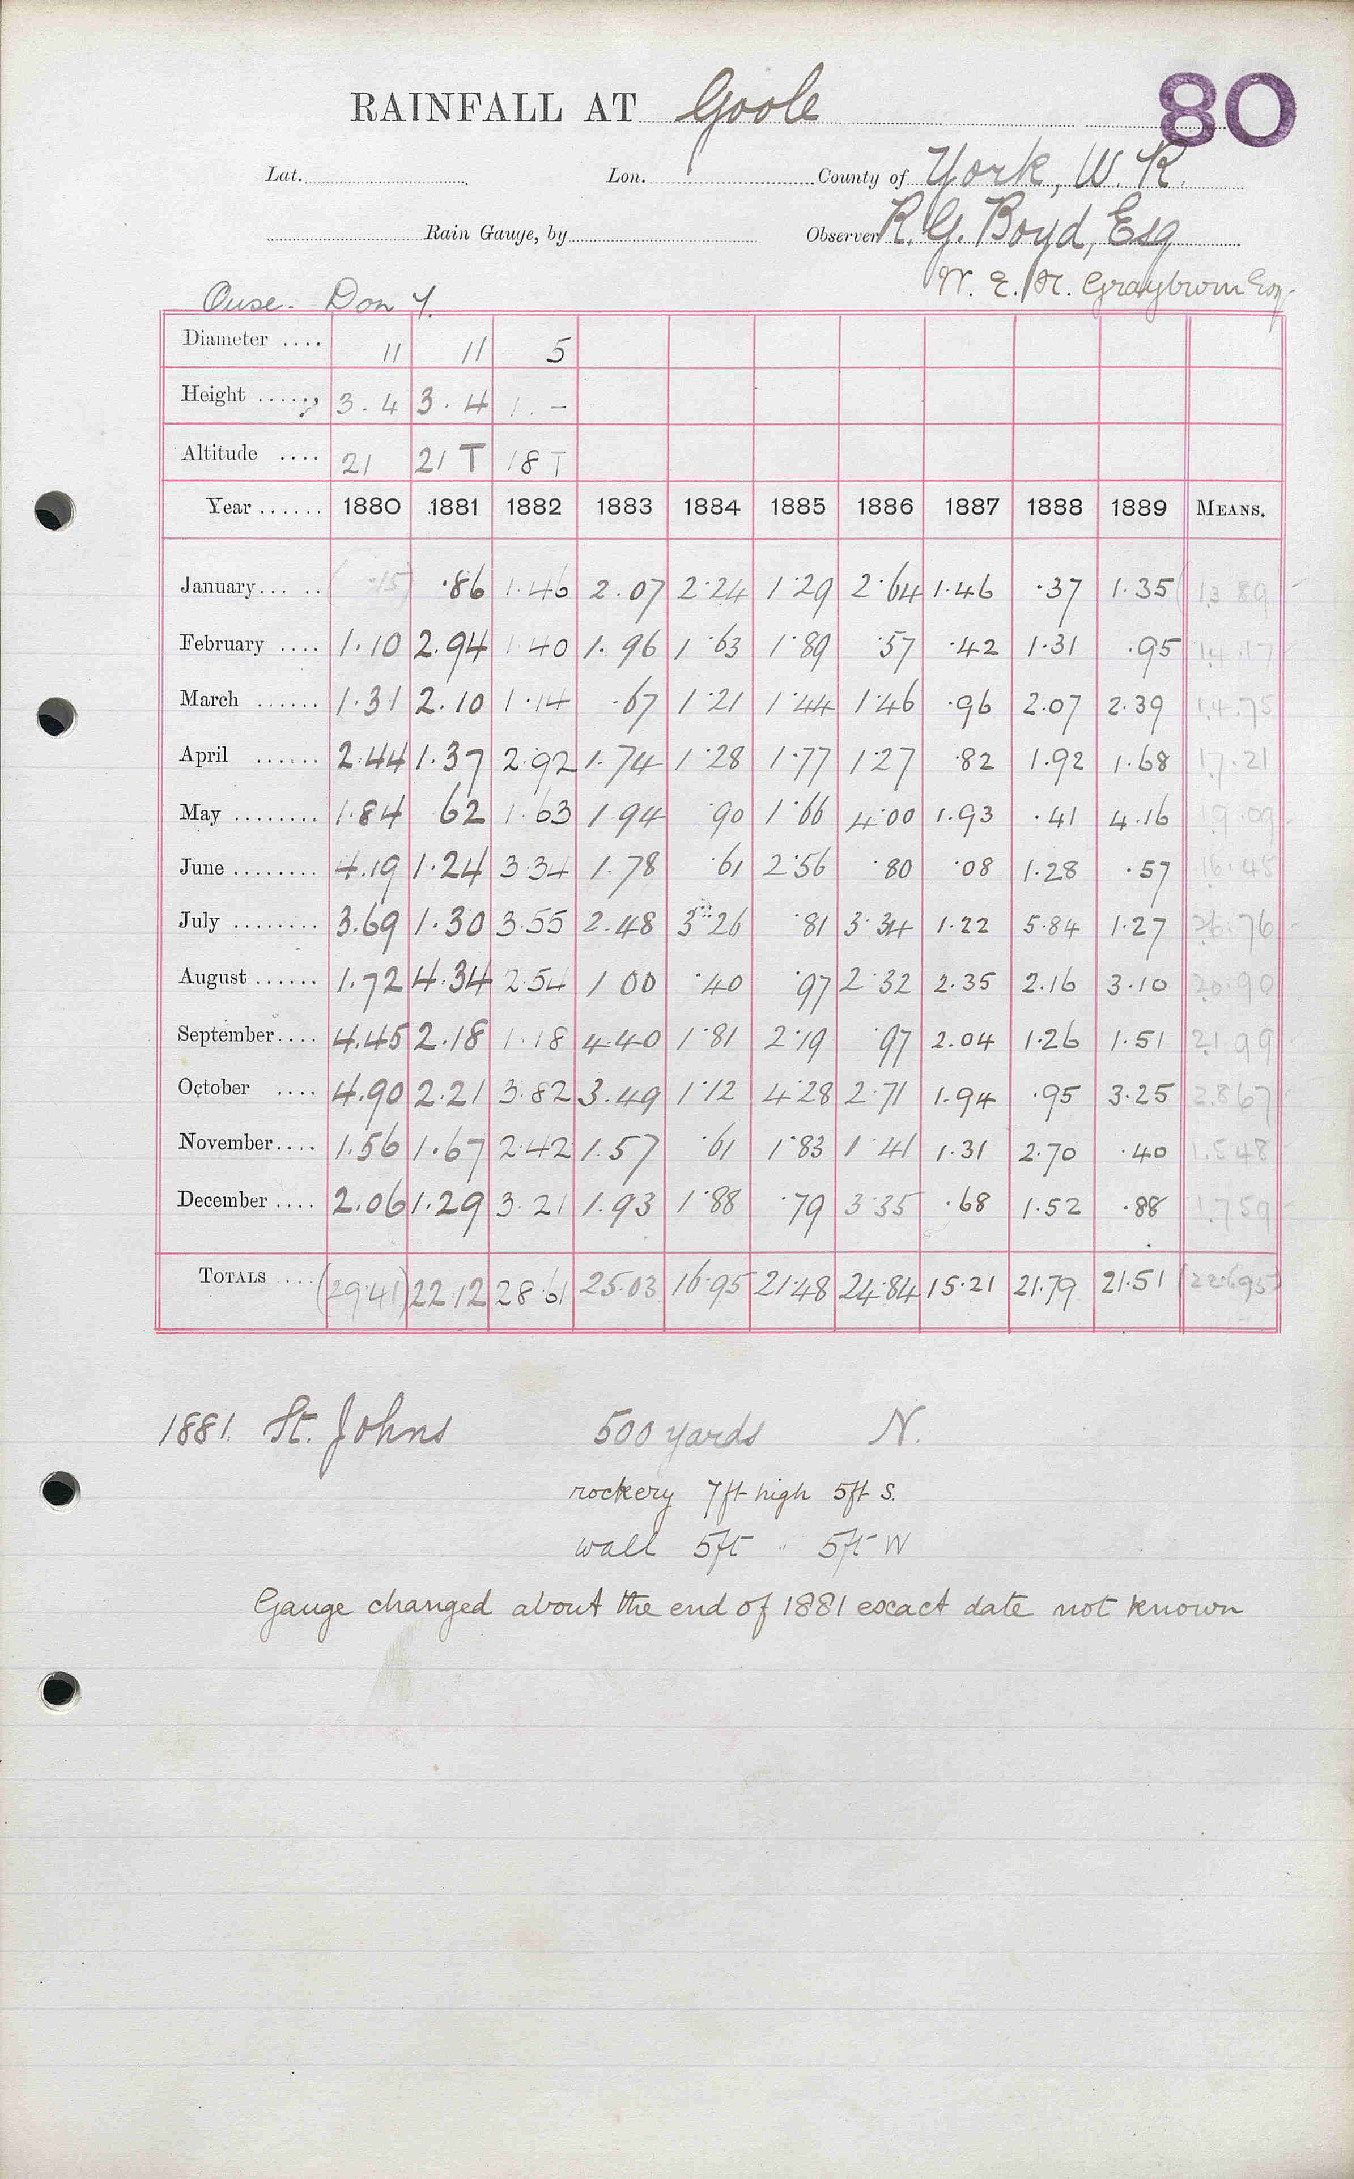 80
RAINFALL AT Goole
Lat. Lon. County of York, W. R.
Rain Gauge, by Observer R. G. Boyd, Esq
W. E. H. Esq.
Ouse - Don Y.
Diameter .... 11 11 5
Height ...... 3.4 3.4 1. -
Altitude .... 21 21 T 18 T
Year ...... 1880 1881 1882 1883 1884 1885 1886 1887 1888 1889 MEANS.
January... .. (.15) .86 1.46 2.07 2.24 1.29 2.64 1.46 .37 1.35 (13 89
February .... 1.10 2.94 1.40 1.96 1.63 1.89 .57 .42 1.31 .95 14.17
March ...... 1.31 2.10 1.14 .67 1.21 1.44 1.46 .96 2.07 2.39 14.75
April ...... 2.44 1.37 2.92 1.74 1.28 1.77 1.27 .82 1.92 1.68 17.21
May ........ 1.84 62 1.63 1.94 .90 1.66 4.00 1.93 .41 4.16 19.09
June ........ 4.19 1.24 3.34 1.78 .61 2.56 .80 .08 1.28 .57 16.45
July ........ 3.69 1.30 3.55 2.48 3.26 .81 3.34 1.22 5.84 1.27 26.76
August ...... 1.72 4.34 2.54 1 00 .40 .97 2.32 2.35 2.16 3.10 20.90
September.... 4.45 2.18 1.18 4.40 1.81 2.19 .97 2.04 1.26 1.51 21 99
October .... 4.90 2.21 3.82 3.49 1.12 4.28 2.71 1.94 .95 3.25 2.867
November.... 1.56 1.67 2.42 1.57 .61 1.83 1.41 1.31 2.70 .40 1.548
December .... 2.06 1.29 3.21 1.93 1.88 .79 3.35 .68 1.52 .88 1.759
TOTALS .... (29.41) 22.12 28.61 25.03 16.95 21.48 24.84 15.21 21.79 21.51 (22.695)
1881. St. Johns 500 yards N.
rockery 7ft high 5ft S.
wall 5ft " 5ft W
Gauge changed about the end of 1881 exact date not known